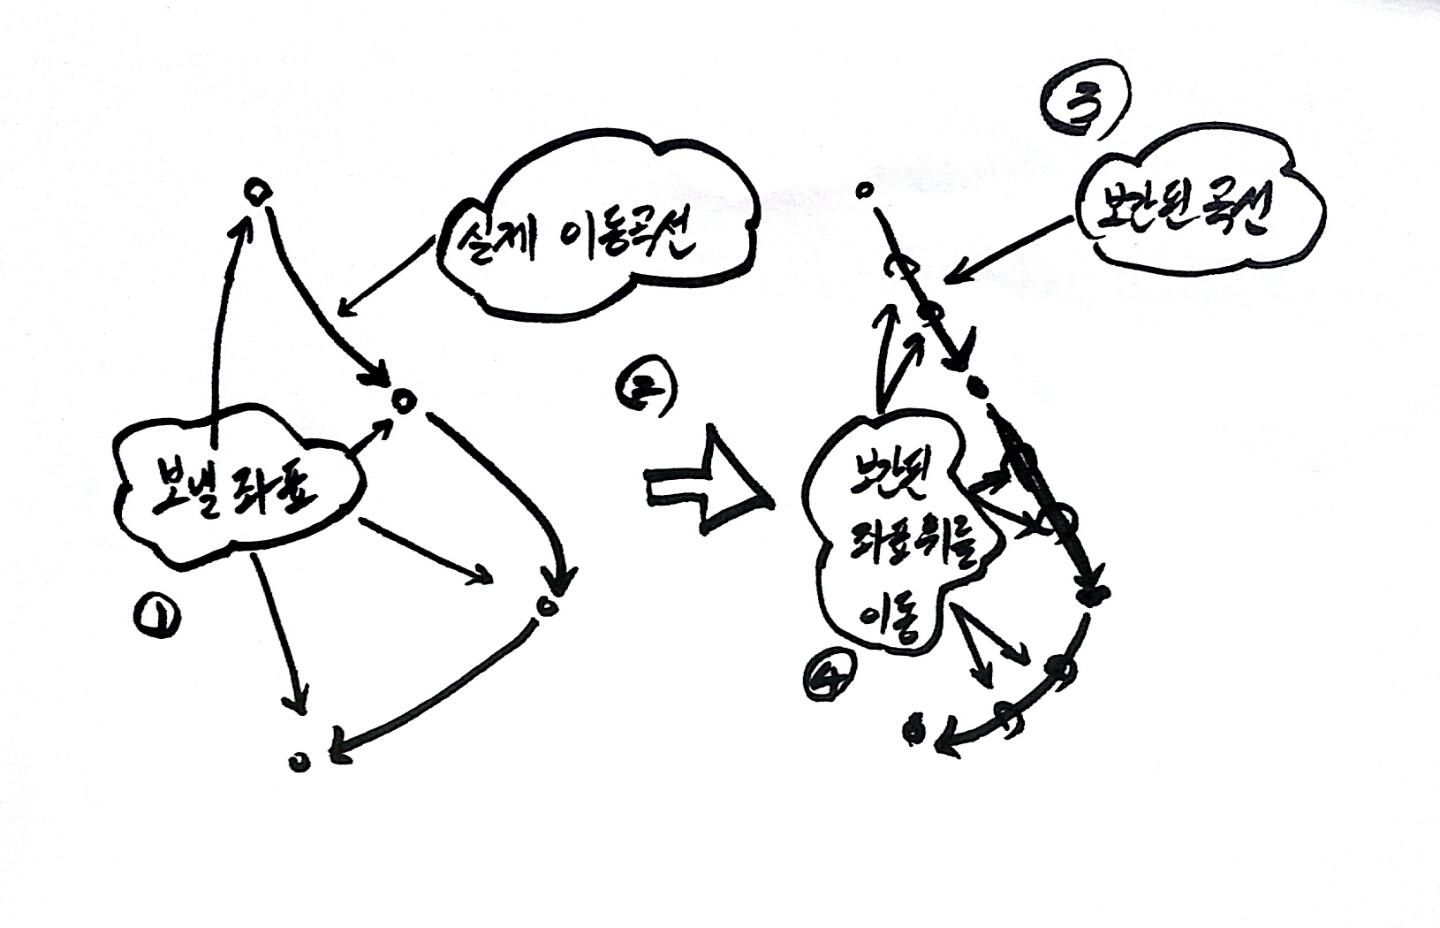 실제 이동곡선
보낼 좌표
①
②
③
보간된 곡선
보간된
좌표위를
이동
④